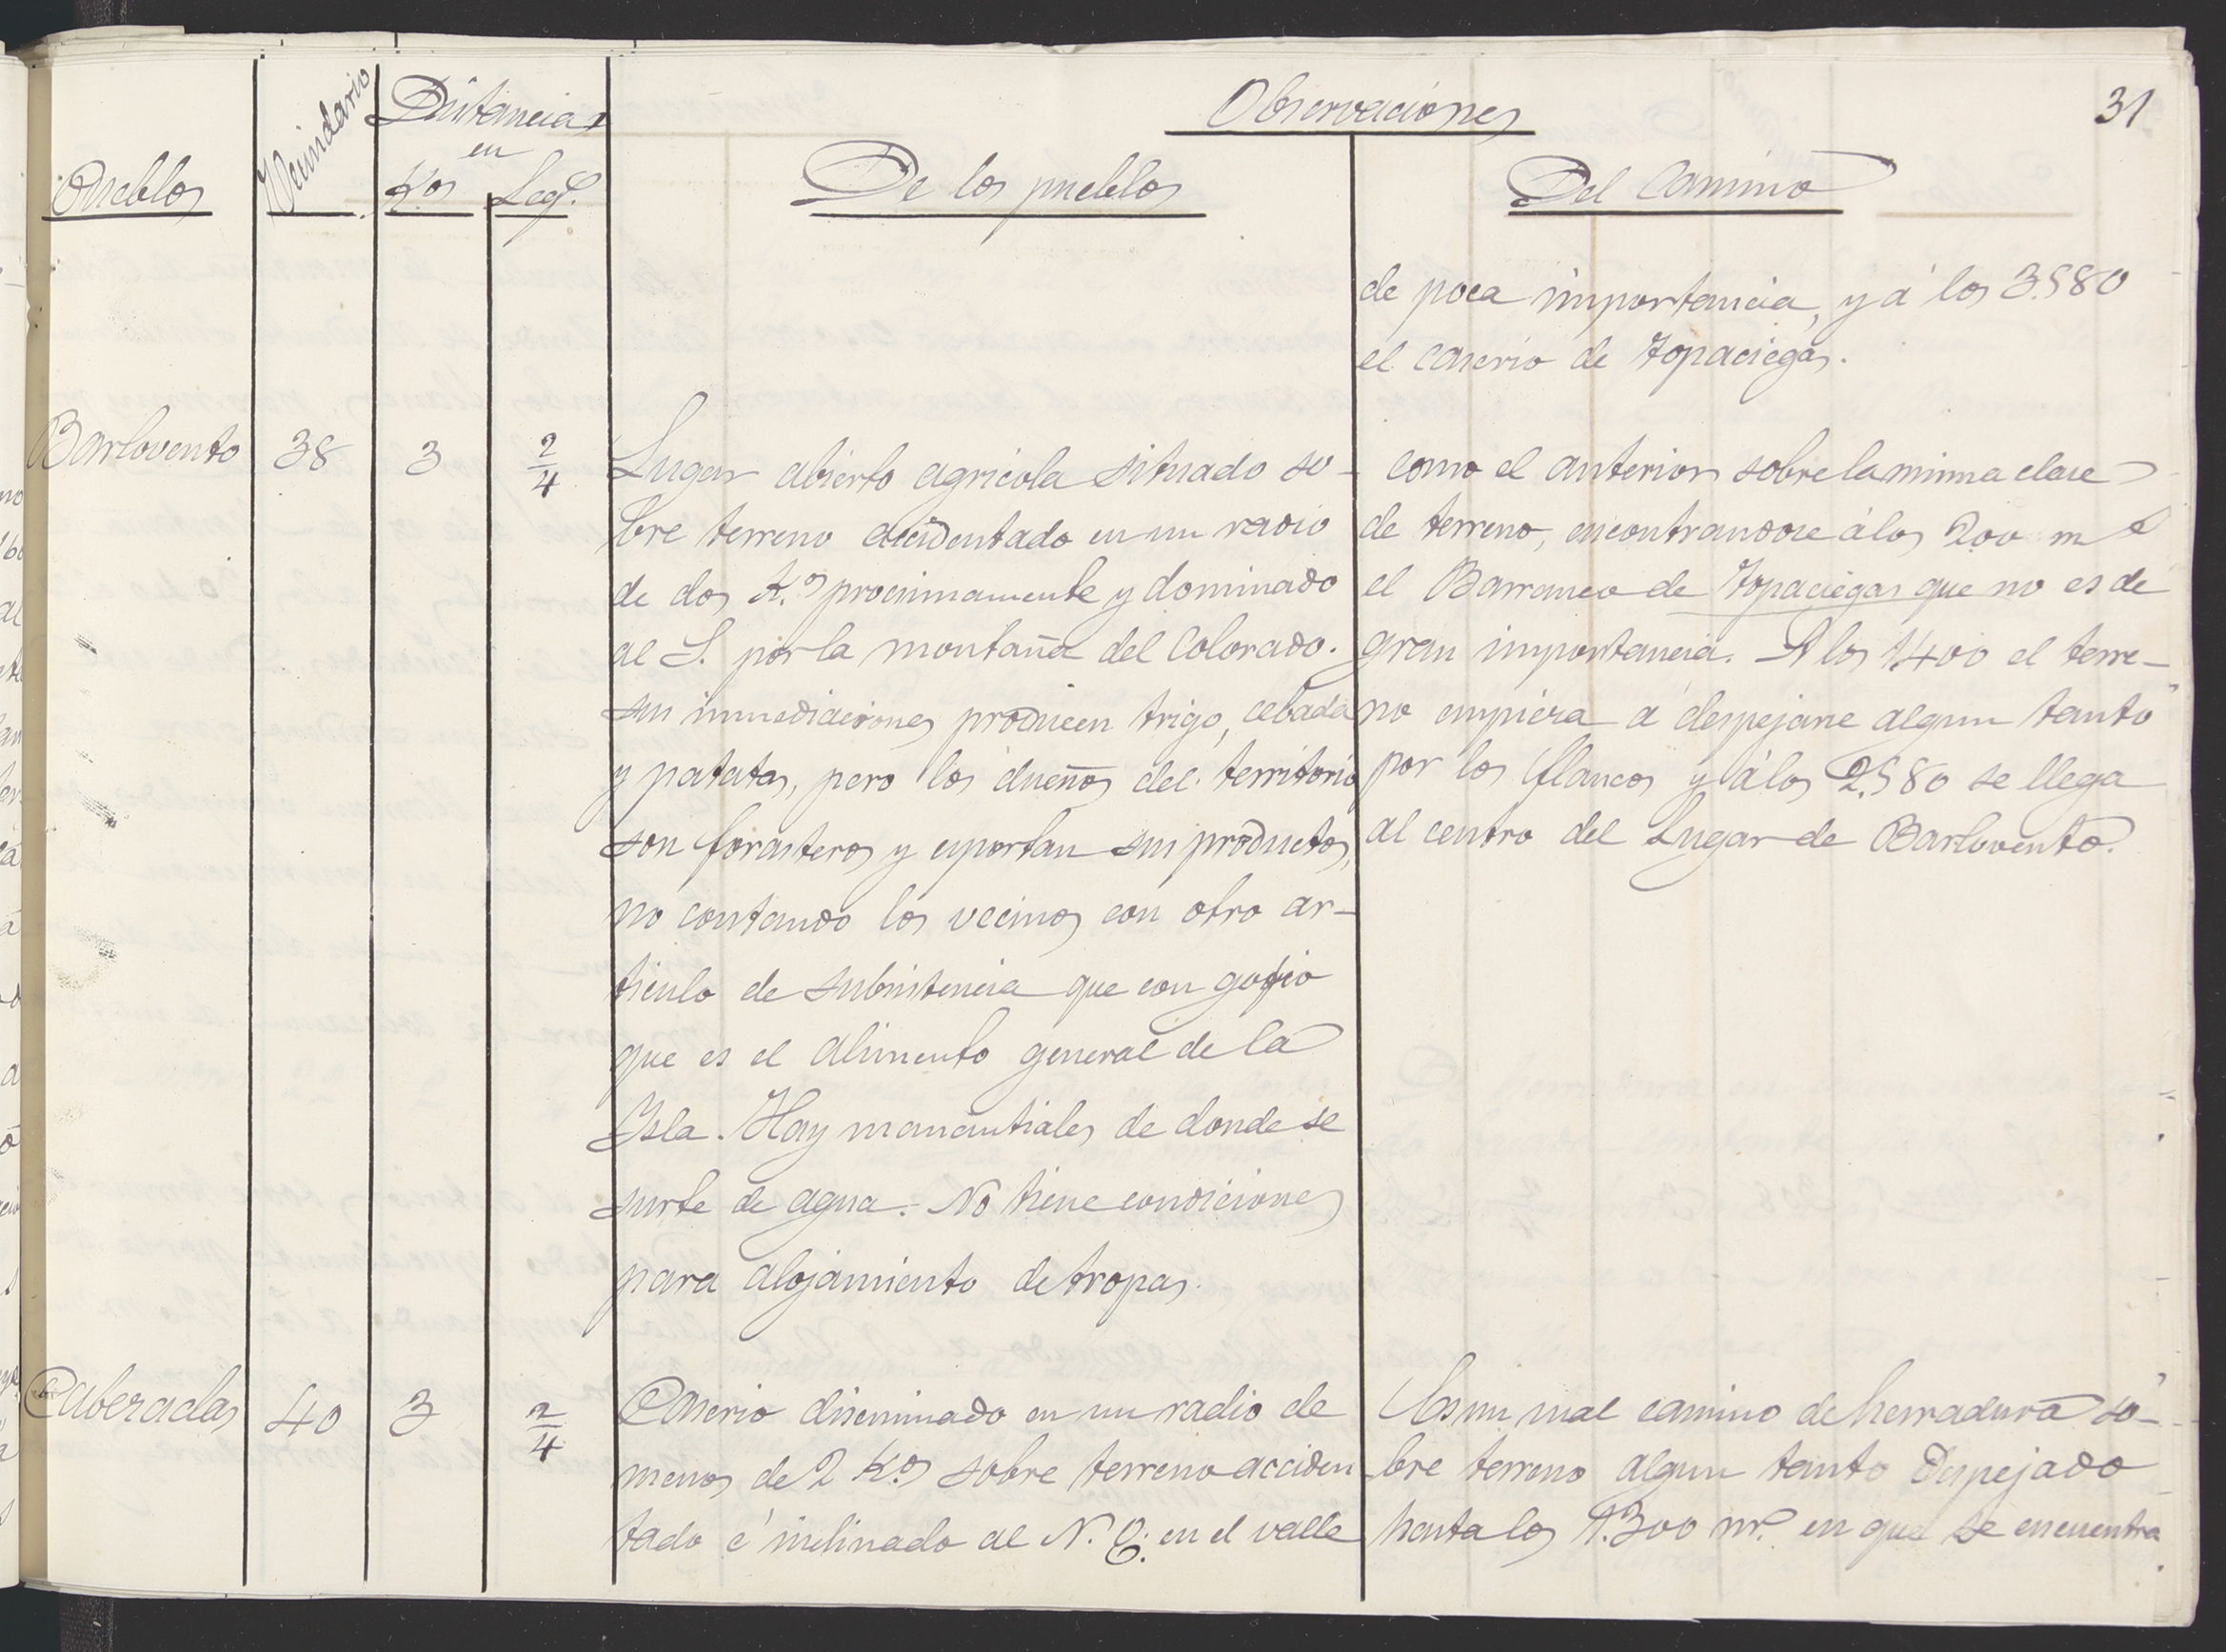 31
Observaciones
Pueblos
Vecindario
Distancias
en
K.os
Leg.s
De los pueblos
Del Camino
de poca importancia, y á los 3.580
el caserio de Topaciegas.
Barlovento
38
3
2/4
Lugar abierto agricola situado so-
bre terreno accidentado en un radio
de dos K.os procsimamente y dominado
al S. por la montaña del Colorado.
sus inmediaciones producen trigo, cebada
y patatas, pero los dueños del territorio
son forasteros y esportan sus productos,
no contando los vecinos con otro ar-
ticulo de subsistencia que con gofio
que es el alimento general de la
Isla. Hay manantiales de donde se
surte de agua. No tiene condiciones
para alojamiento de tropas.
como el anterior sobre la misma clase
de terreno, encontrandose á los 200 m.s
el Barranco de Topaciegas que no es de
gran importancia. A los 1400 el terre-
no empieza a despejarse algun tanto
por los flancos y á los 2.580 se llega
al centro del Lugar de Barlovento.
Cabezadas
40
3
2/4
Caserio diseminado en un radio de
menos de 2 K.os sobre terreno acciden
tado é inclinado al N. E. en el valle
Es un mal camino de herradura so-
bre terreno algun tanto despejado
hasta los 1.300 m.s en que se encuentra